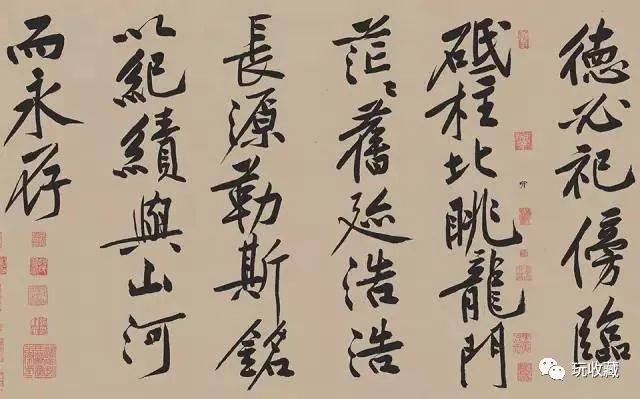 德必祀傍臨
砥柱北眺龍門
茫〻舊迹浩浩
長源勒斯銘
以紀績與山河
而永存
玩收藏